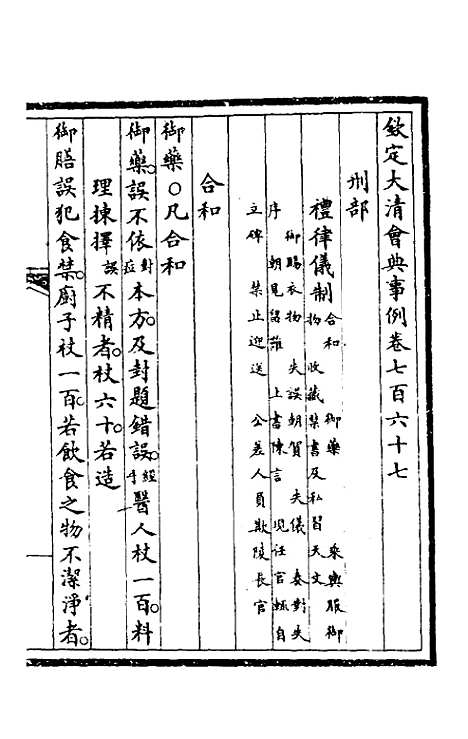 欽定大清會典事例卷七百六十七
刑部
禮律儀制 合和 御藥 乘輿服御
物 收藏禁書及私習天文
御賜衣物 失誤朝賀 失儀 奏對失
序 朝見留難 上書陳言 見任官輒自
立碑 禁止迎送 公差人員欺陵長官
合和
御藥○凡合和
御藥誤不依對證本方及封題錯誤經手醫人杖一百料
理揀擇誤不精者杖六十若造
御膳誤犯食禁廚子杖一百若飲食之物不潔淨者